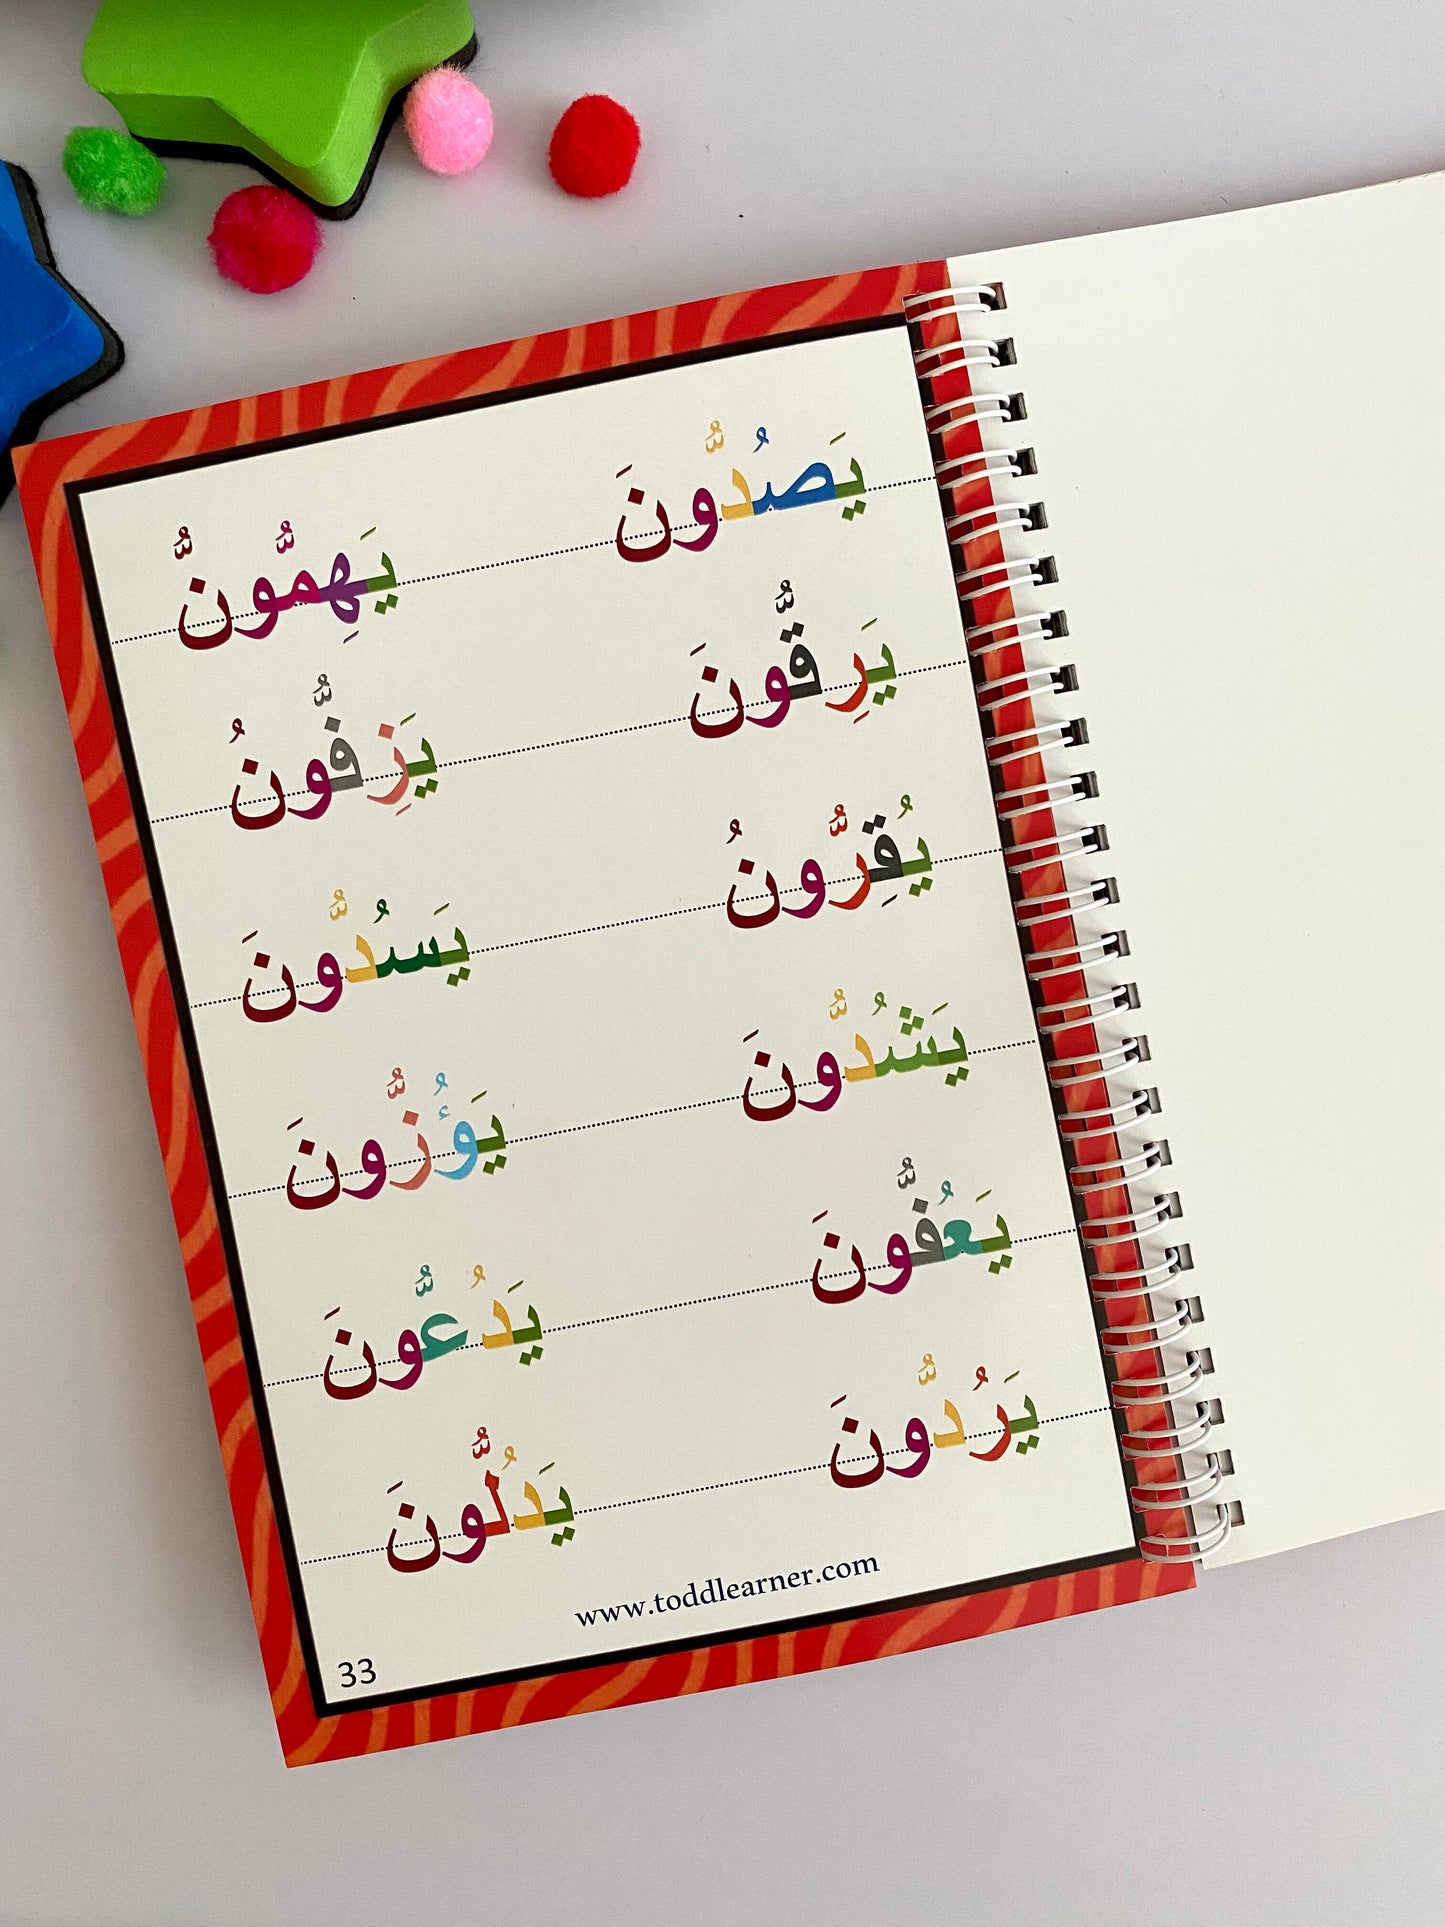 يَصُدُّونَ يَهِمُّونُّ
يَرِقُّونَ يَزِفُّونُ
يُقِرُّونُ يَسُدُّونَ
يَشُدُّونَ يَؤُزُّونَ
يَعُفُّونَ يَدُعُّونَ
يَرُدُّونَ يَدُلُّونَ
www.toddlearner.com
33